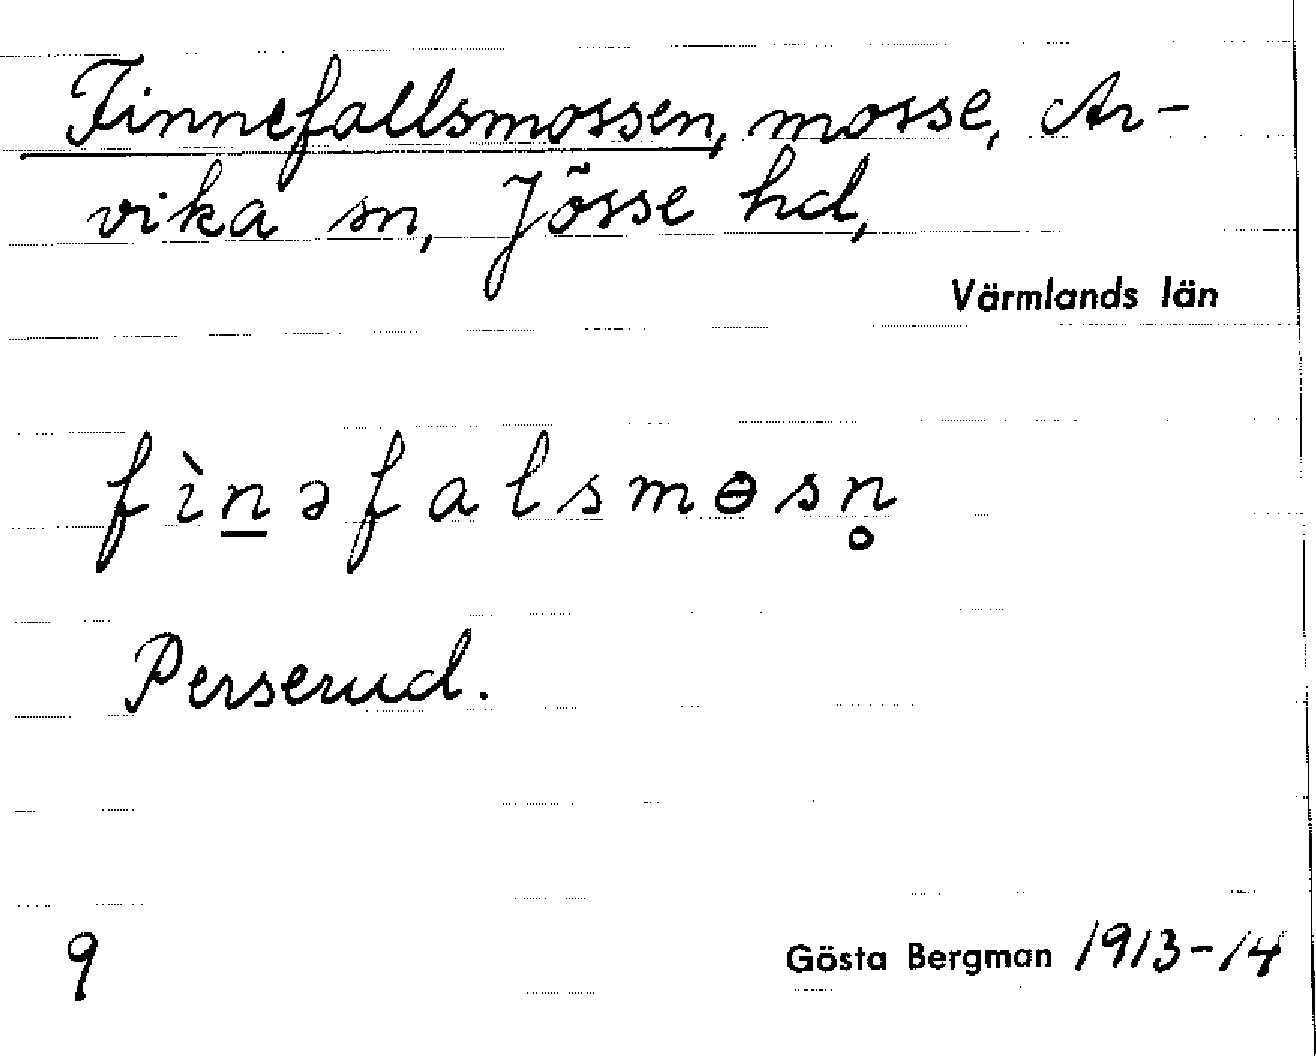 Finnefallsmossen, mosse, Ar-
vika sn, Jösse hd,
Värmlands län
fìn̲əfalsmɵsn̥
Perserud.
9
Gösta Bergman 1913-14